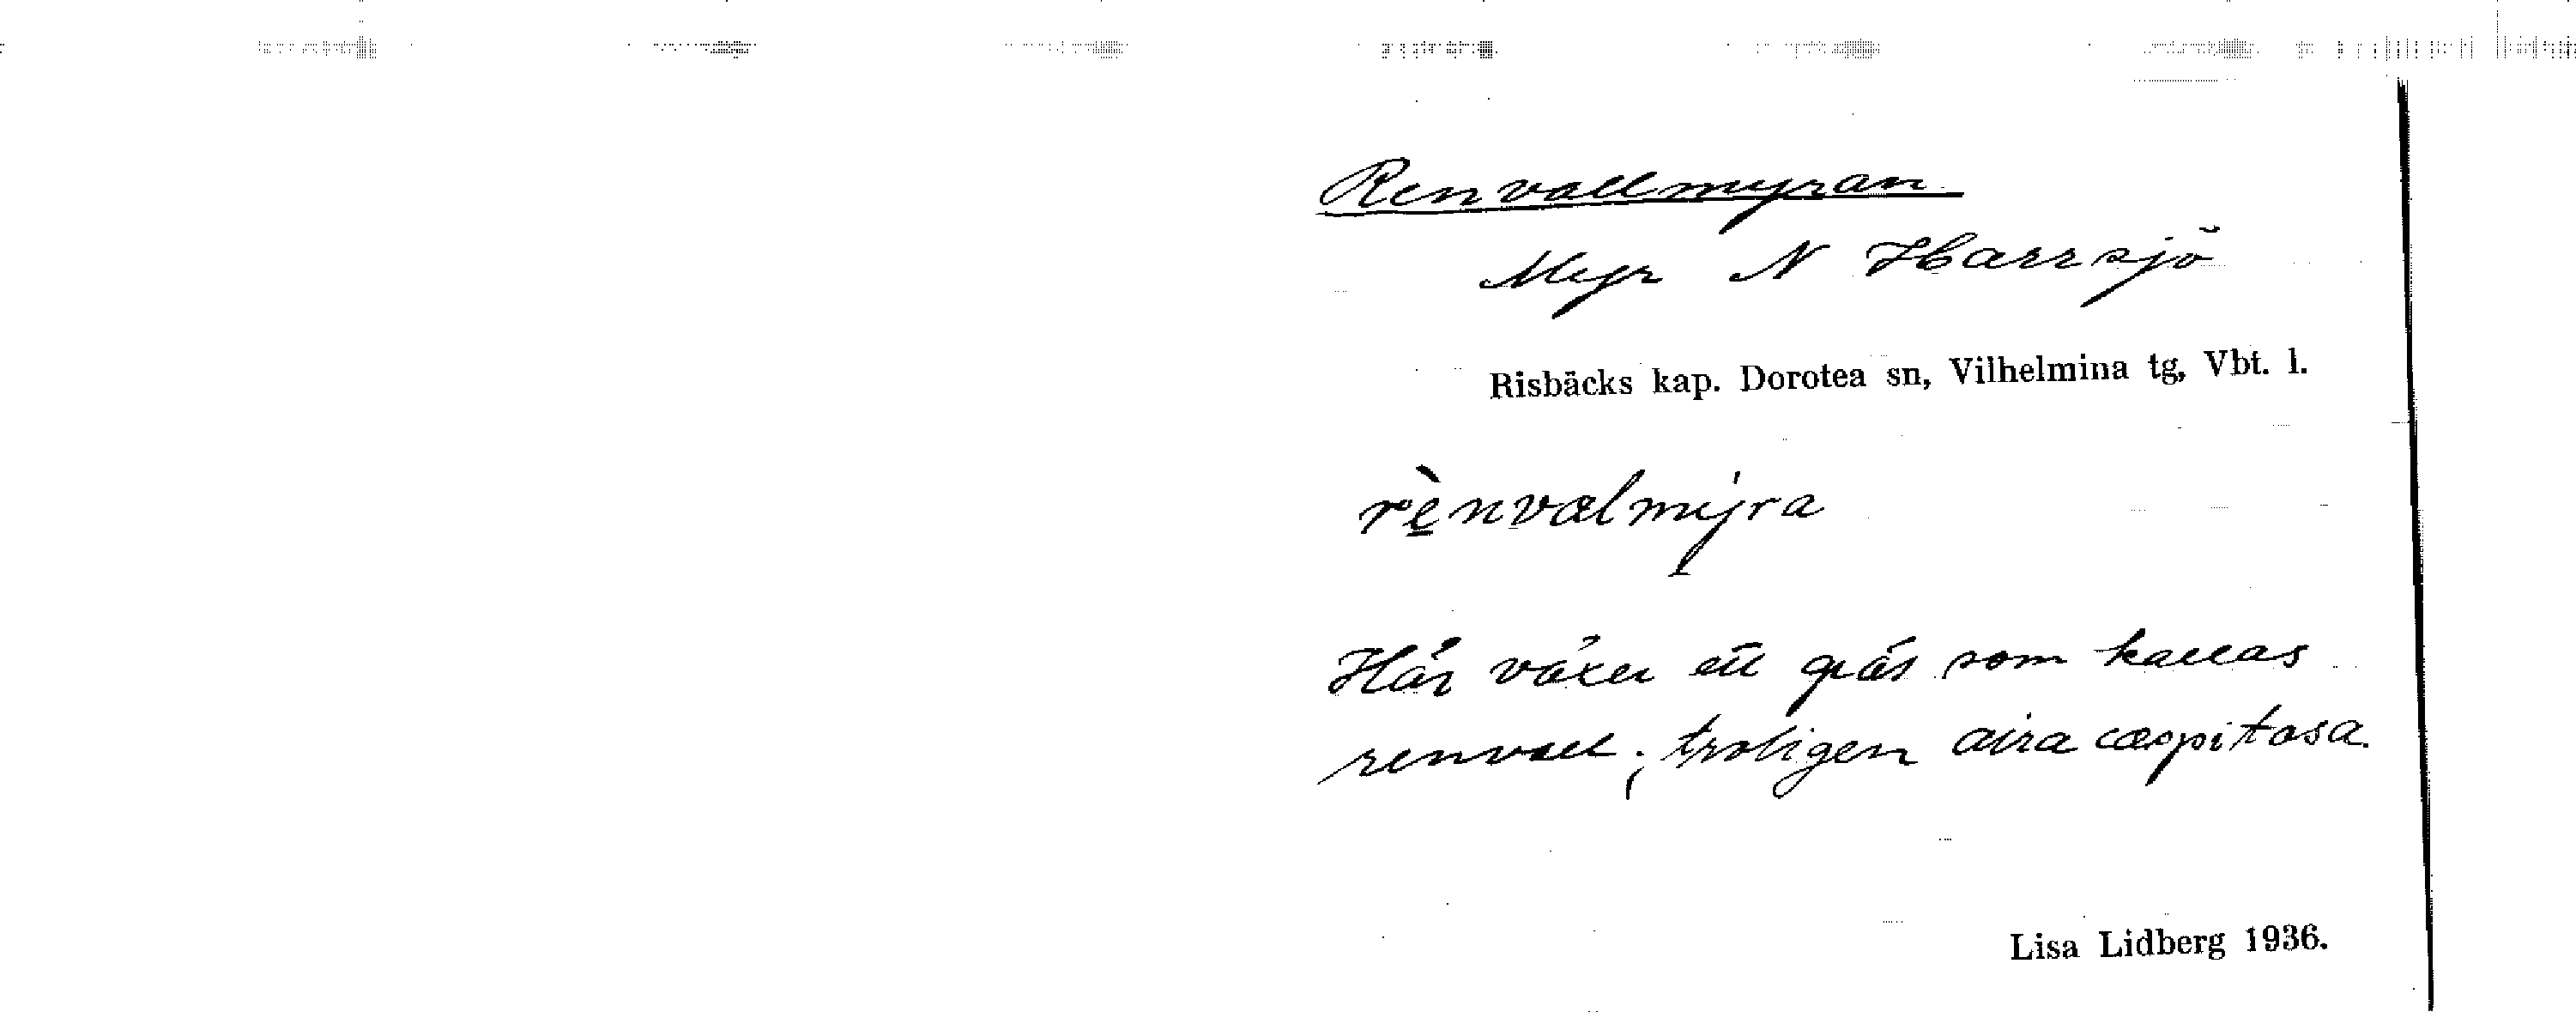 Renvallmyran
Myr N Harrsjö
Risbäcks kap. Dorotea sn, Vilhelmina tg, Vbt. l.
rènvalmýra
Här växer ett gräs som kallas
renvall; troligen aira cæspitosa.
Lisa Lidberg 1936.